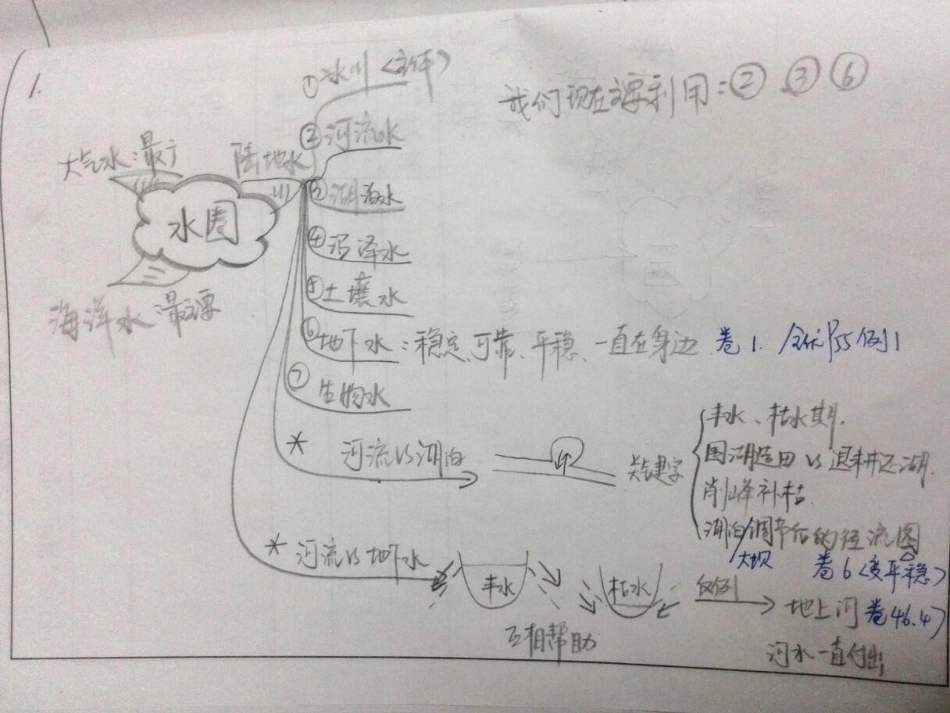 1.
①冰川〈主体〉
我们现在主要利用:②、③⑥
②河流水
大气水:最广
陆地水
③湖泊水
水圈
④沼泽水
⑤土壤水
海洋水 最主要
⑥地下水:稳定、可靠、平稳、一直在身边 卷1. 全优P55例1
⑦生物水
* 河流vs湖泊
关键字
丰水、枯水期.
围湖造田 vs 退耕还湖.
削峰补枯.
湖泊/调节后的径流图
大坝 卷6〈变平稳〉
* 河流vs地下水
丰水
枯水
反例
地上河 卷46.47
互相帮助
河水一直付出